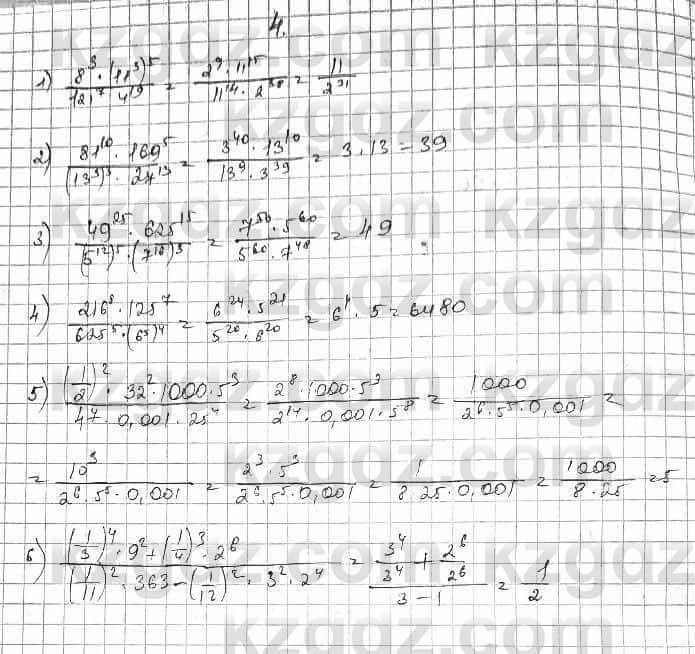 4.
1) (8³ · (11³)⁵) / (121⁷ · 4¹⁹) = (2⁹ · 11¹⁵) / (11¹⁴ · 2³⁸) = 11 / 2³¹
2) (81¹⁰ · 169⁵) / ((13³)³ · 27¹³) = (3⁴⁰ · 13¹⁰) / (13⁹ · 3³⁹) = 3 · 13 = 39
3) (49²⁵ · 625¹⁵) / ((5¹²)⁵ · (7¹⁶)³) = (7⁵⁰ · 5⁶⁰) / (5⁶⁰ · 7⁴⁸) = 49
4) (216⁸ · 125⁷) / (625⁵ · (6⁵)⁴) = (6²⁴ · 5²¹) / (5²⁰ · 6²⁰) = 6⁴ · 5 = 6480
5) ((1/2)² · 32² · 1000 · 5³) / (4⁷ · 0,001 · 25⁴) = (2⁸ · 1000 · 5³) / (2¹⁴ · 0,001 · 5⁸) = 1000 / (2⁶ · 5⁵ · 0,001) =
= 10³ / (2⁶ · 5⁵ · 0,001) = (2³ · 5³) / (2⁶ · 5⁵ · 0,001) = 1 / (8 · 25 · 0,001) = 1000 / (8 · 25) = 5
6) ((1/3)⁴ · 9² + (1/4)³ · 2⁶) / ((1/11)² · 363 − (1/12)² · 3² · 2⁴) = (3⁴/3⁴ + 2⁶/2⁶) / (3 − 1) = 1/2
kzgdz.com